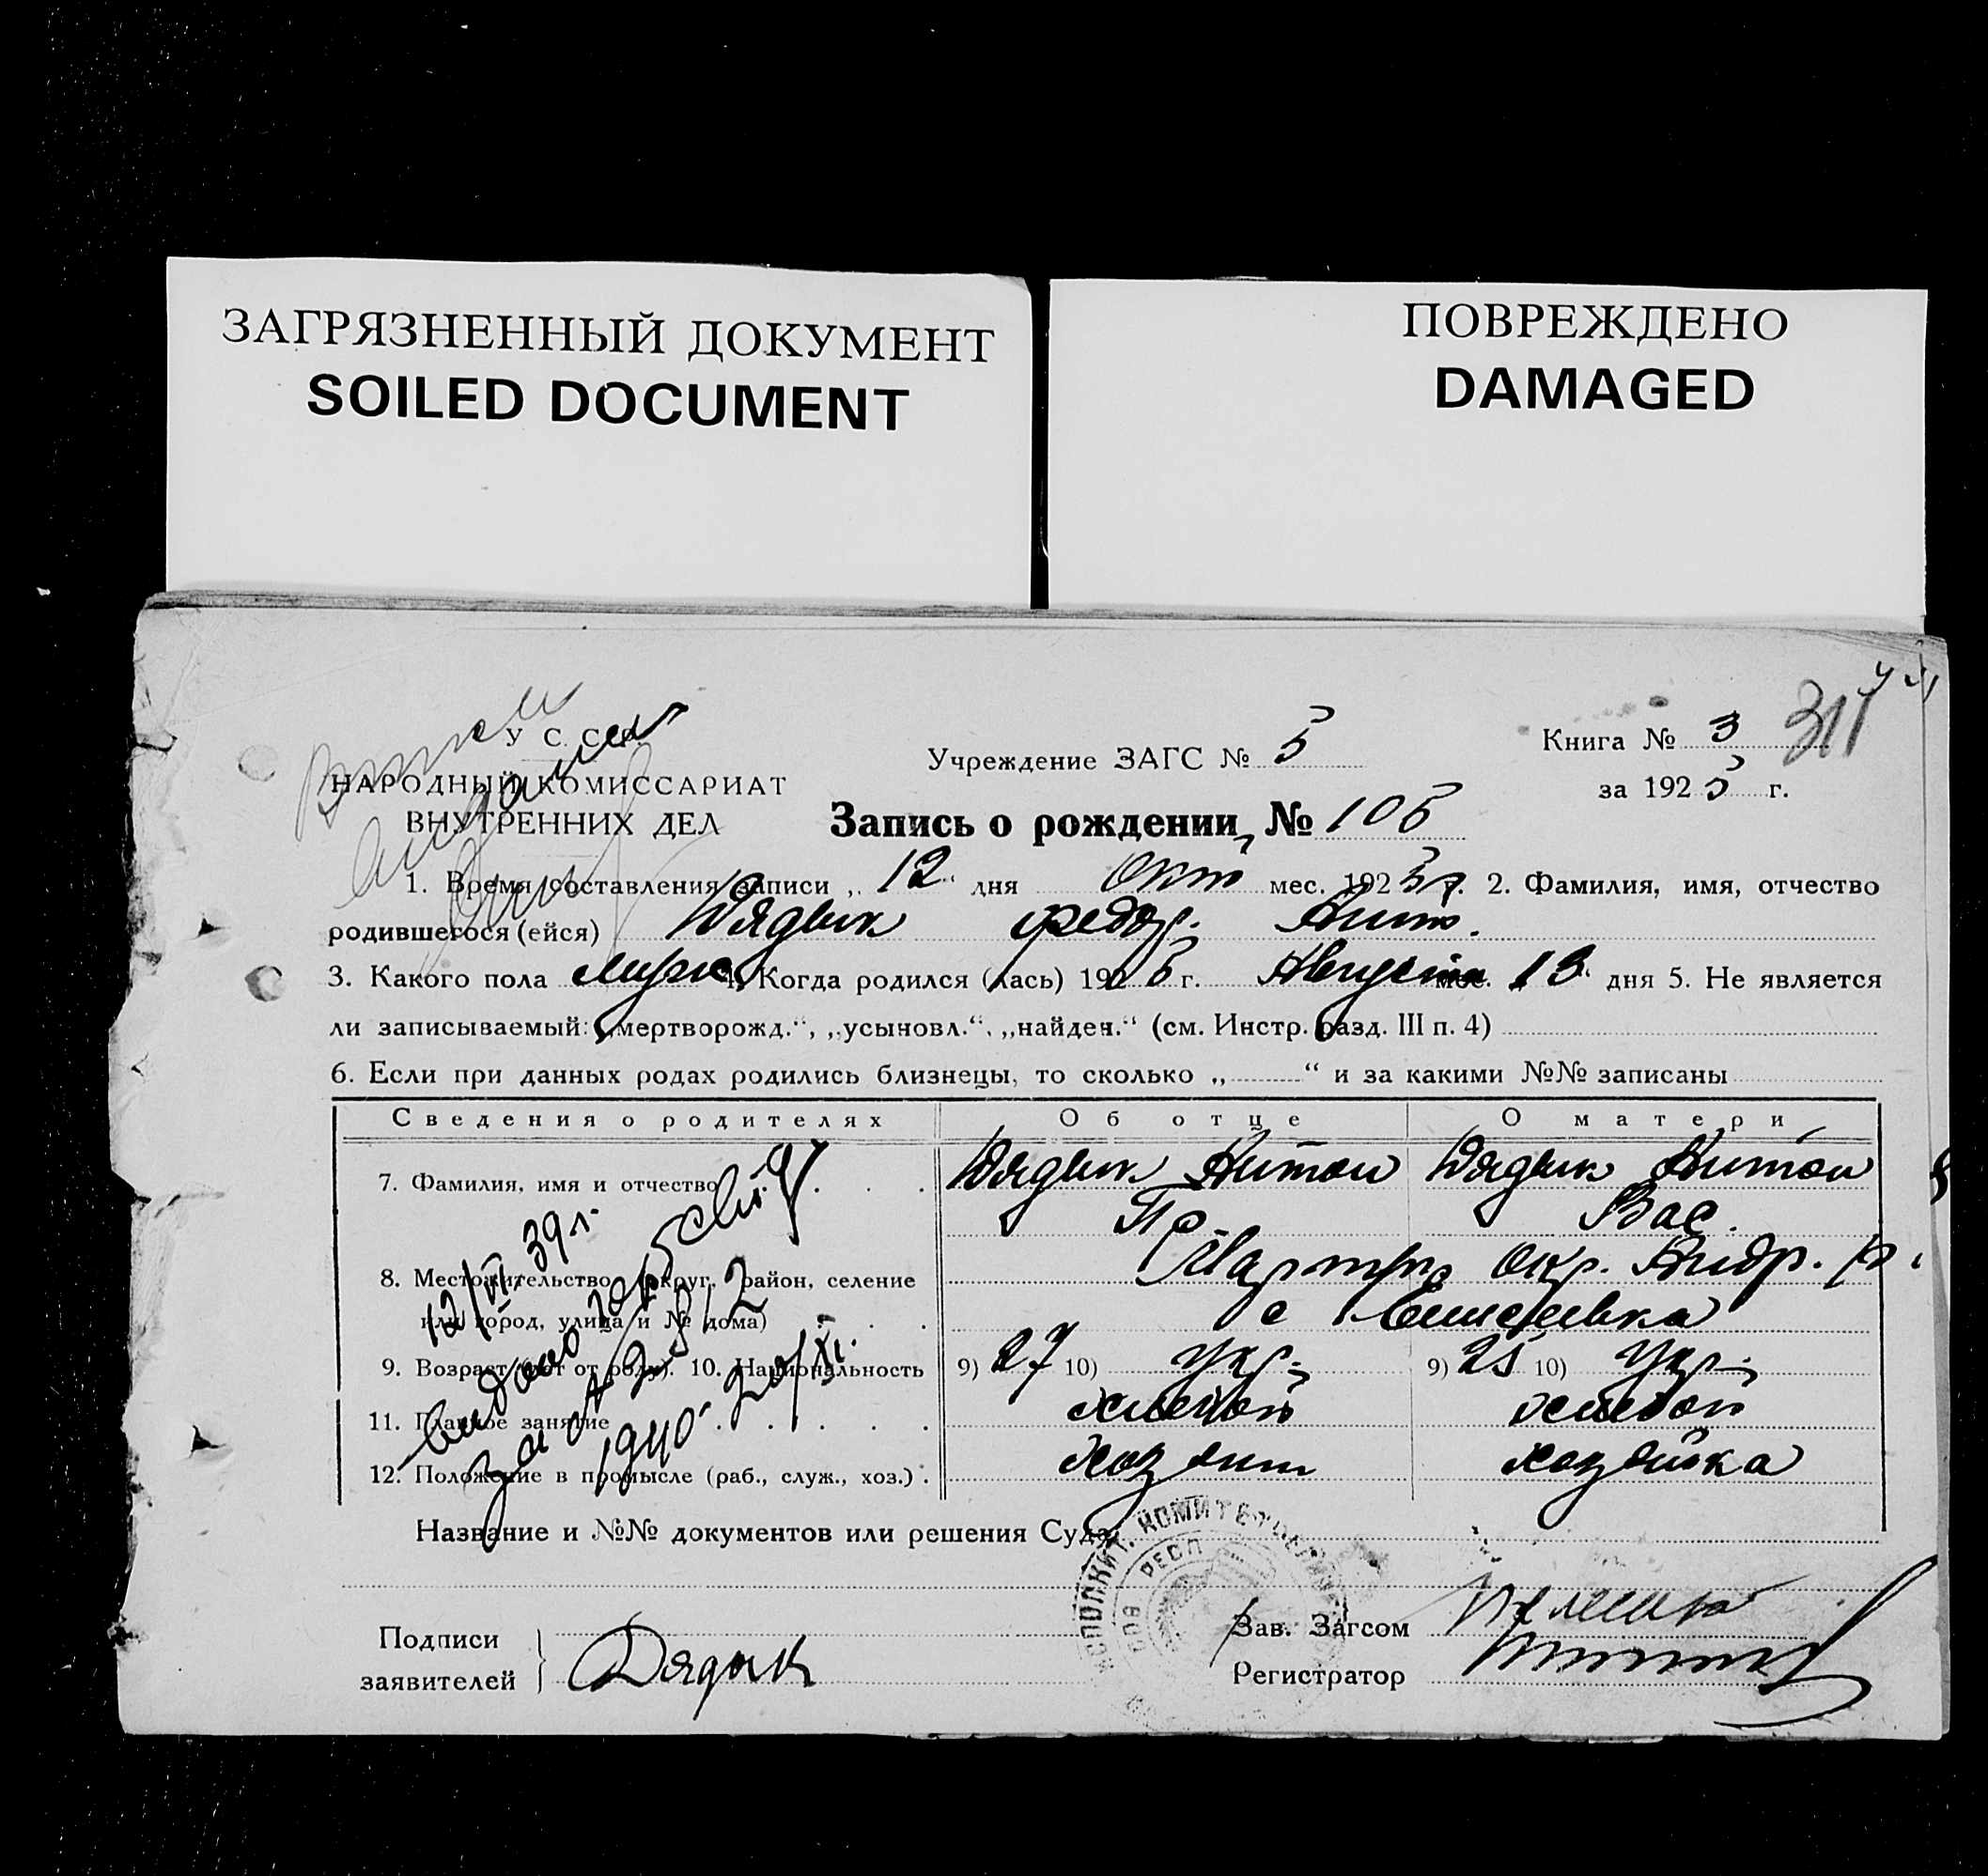 ЗАГРЯЗНЕННЫЙ ДОКУМЕНТ
SOILED DOCUMENT
ПОВРЕЖДЕНО
DAMAGED
У С. С. Р.
НАРОДНЫЙ КОМИССАРИАТ
ВНУТРЕННИХ ДЕЛ
Учреждение ЗАГС № 5
Книга № 3
за 1925 г.
Запись о рождении, № 105
1. Время составления записи „ 12 " дня Окт мес. 1925 г. 2. Фамилия, имя, отчество
родившегося (ейся) Дядык Федор. Ант.
3. Какого пола муж 4. Когда родился (лась) 1925 г. Августа мес. 13 дня 5. Не является
ли записываемый: „мертворожд.", „усыновл.", „найден." (см. Инстр. разд. III п. 4)
6. Если при данных родах родились близнецы, то сколько „ " и за какими №№ записаны
Сведения о родителях Об отце О матери
7. Фамилия, имя и отчество Дядык Антон Дядык
Вас.
8. Местожительство (округ, район, селение Окр. Андр. р.
или город, улица и № дома) с
9. Возраст (лет от роду). 10. Национальность 9) 27 10) Укр. 9) 25 10) Укр.
11. Главное занятие
12. Положение в промысле (раб., служ., хоз.) хозяин хозяйка
Название и №№ документов или решения Суда
12/VI 39 г.
видано
1940 20/XI.
ИСПОЛКИТ. КОМИТЕТ
РЕСП
Подписи
заявителей Дядык
Зав. Загсом
Регистратор